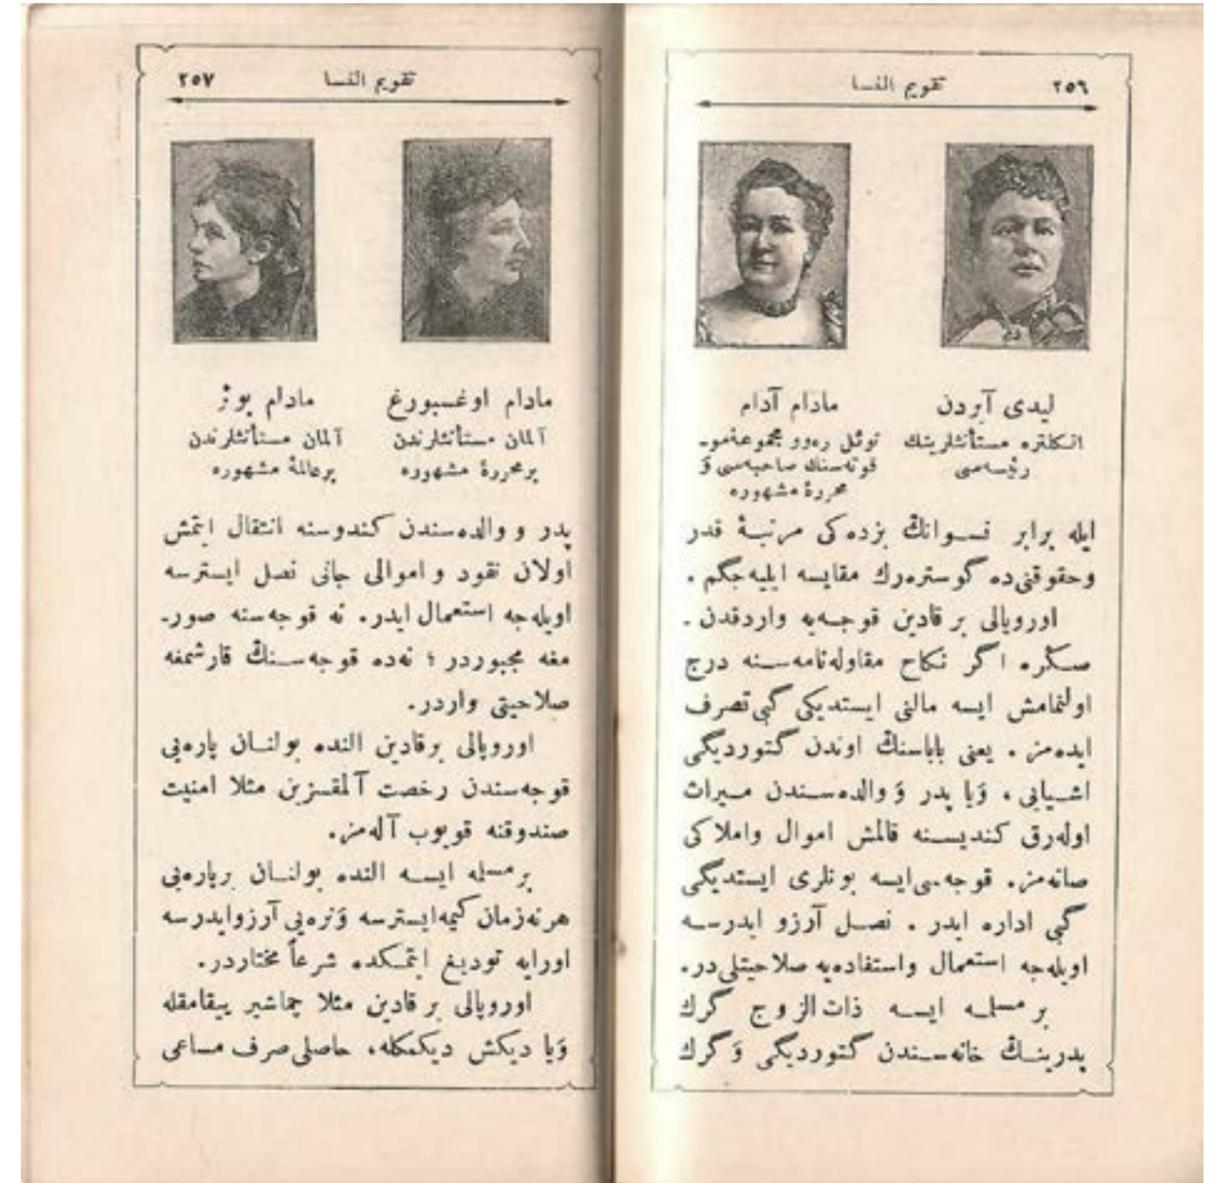 ٢٥٦ تقويم النسا
ليدى آبردن
انكلتره مستأنثلرينك
رئيسه‌سى
مادام آدام
نوئل ره‌وو مجموعه‌مو-
قوته‌سنك صاحبه‌سى وَ
محررهٔ مشهوره
ايله برابر نسوانڭ بزده‌كى مرتبهٔ قدر
وحقوقنى‌ده گوستره‌رك مقايسه ايليه‌جگم .
اوروپالى بر قادين قوجه‌يه واردقدن -
صكره ، اگر نكاح مقاوله‌نامه‌سنه درج
اولنمامش ايسه مالنى ايستديكى گبى تصرف
ايده‌مز . يعنى باباسنڭ اوندن گتورديگى
اشيايى ، وَيا پدر وَ والده‌سندن ميراث
اوله‌رق كنديسنه قالمش اموال واملاكى
صانه‌مز. قوجه‌سى‌ايسه بونلرى ايستديگى
گبى اداره ايدر . نصل آرزو ايدرسه
اويله‌جه استعمال واستفاده‌يه صلاحيتلى‌در.
بر مسلمه ايسه ذات‌الزوج گرك
پدرينڭ خانه‌سندن گتورديگى وَ گرك
تقويم النسا ٢٥٧
مادام اوغسبورغ
آلمان مستأنثلرندن
برمحررهٔ مشهوره
مادام بوژ
آلمان مستأنثلرندن
برعالمهٔ مشهوره
پدر و والده‌سندن كندوسنه انتقال ايتمش
اولان نقود و اموالى جانى نصل ايسترسه
اويله‌جه استعمال ايدر. نه قوجه‌سنه صور-
مغه مجبوردر ؛ نه‌ده قوجه‌سنڭ قارشمغه
صلاحيتى واردر.
اوروپالى برقادين النده بولنان پاره‌يى
قوجه‌سندن رخصت آلمقسزين مثلا امنيت
صندوقنه قويوب آله‌مز.
برمسلمه ايسه النده بولنان برپاره‌يى
هرنه‌زمان كيمه‌ايسترسه وَنره‌يى آرزوايدرسه
اورايه توديع ايتمكده شرعاً مختاردر.
اوروپالى بر قادين مثلا چماشير ييقامقله
وَيا ديكش ديكمكله، حاصلى صرف مساعى